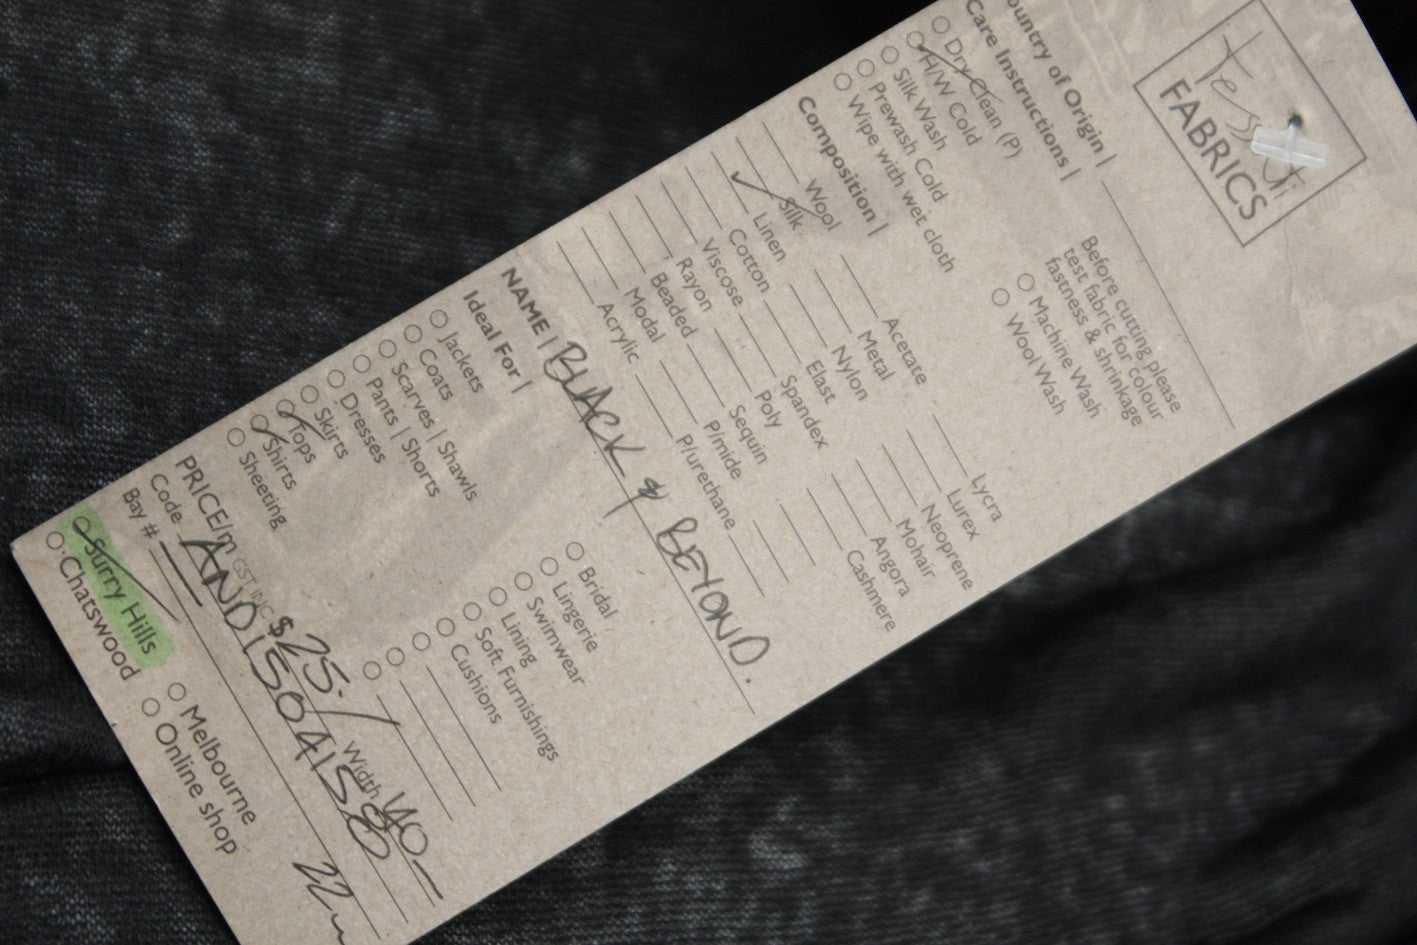 Tessuti
FABRICS
Country of Origin |
Care Instructions |
Dry Clean (P)
H/W Cold
Silk Wash
Prewash Cold
Wipe with wet cloth
Before cutting please
test fabric for colour
fastness & shrinkage
Machine Wash
Wool Wash
Composition |
Wool
Silk
Linen
Cotton
Viscose
Rayon
Beaded
Modal
Acrylic
Acetate
Metal
Nylon
Elast
Spandex
Poly
Sequin
P/mide
P/urethane
Lycra
Lurex
Neoprene
Mohair
Angora
Cashmere
NAME | BLACK & BEYOND.
Ideal For |
Jackets
Coats
Scarves | Shawls
Pants | Shorts
Dresses
Skirts
Tops
Shirts
Sheeting
Bridal
Lingerie
Swimwear
Lining
Soft Furnishings
Cushions
PRICE/m GST INC $25.- Width 140
Code AND15041580
Bay # 22m
Surry Hills
Chatswood
Melbourne
Online shop